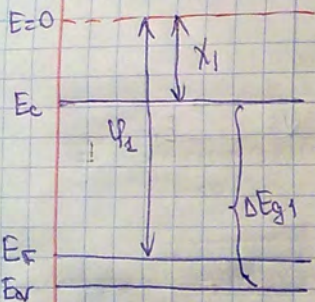 E=0
χ₁
Ec
φ₁
ΔEg1
EF
Ev